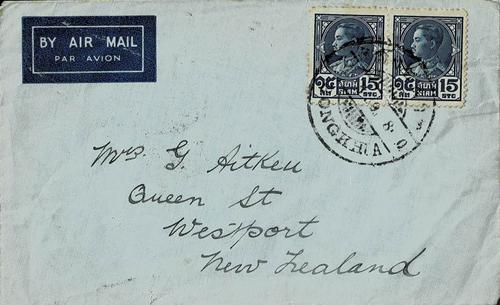 BY AIR MAIL
PAR AVION
๑๕ สยาม 15
SIAM STG
๑๕ สยาม 15
SIAM STG
ONGKHLA
Mrs G. Aitken
Queen St
Westport
New Zealand